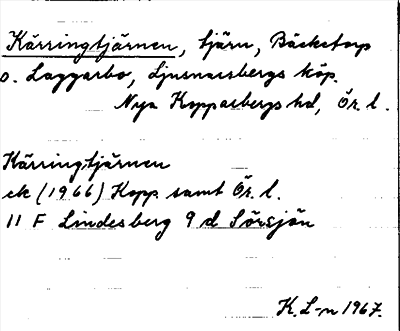 Kärringtjärnen, tjärn, Bäckstorp
o. Laggarbo, Ljusnarsbergs köp.
Nya Kopparbergs hd, Ör. l.
Kärringtjärnen
ek (1966) Kopp. samt Ör. l.
11 F Lindesberg 9 d Sörsjön
K. L-n 1967.